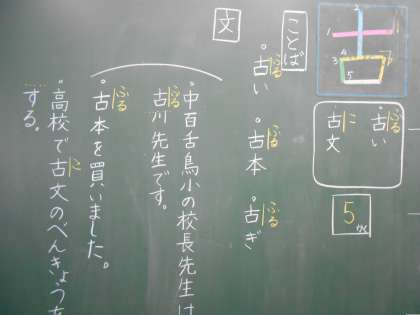 古
1
2
3
4
5
ぶる
古い
ふる
古文
こ
5かく
ことば
・古い
ふる
・古本
ふる
・古ぎ
ふる
文
・中百舌鳥小の校長先生は
古川先生です。
ふる
・古本を買いました。
ふる
・高校で古文のべんきょうを
こ
する。